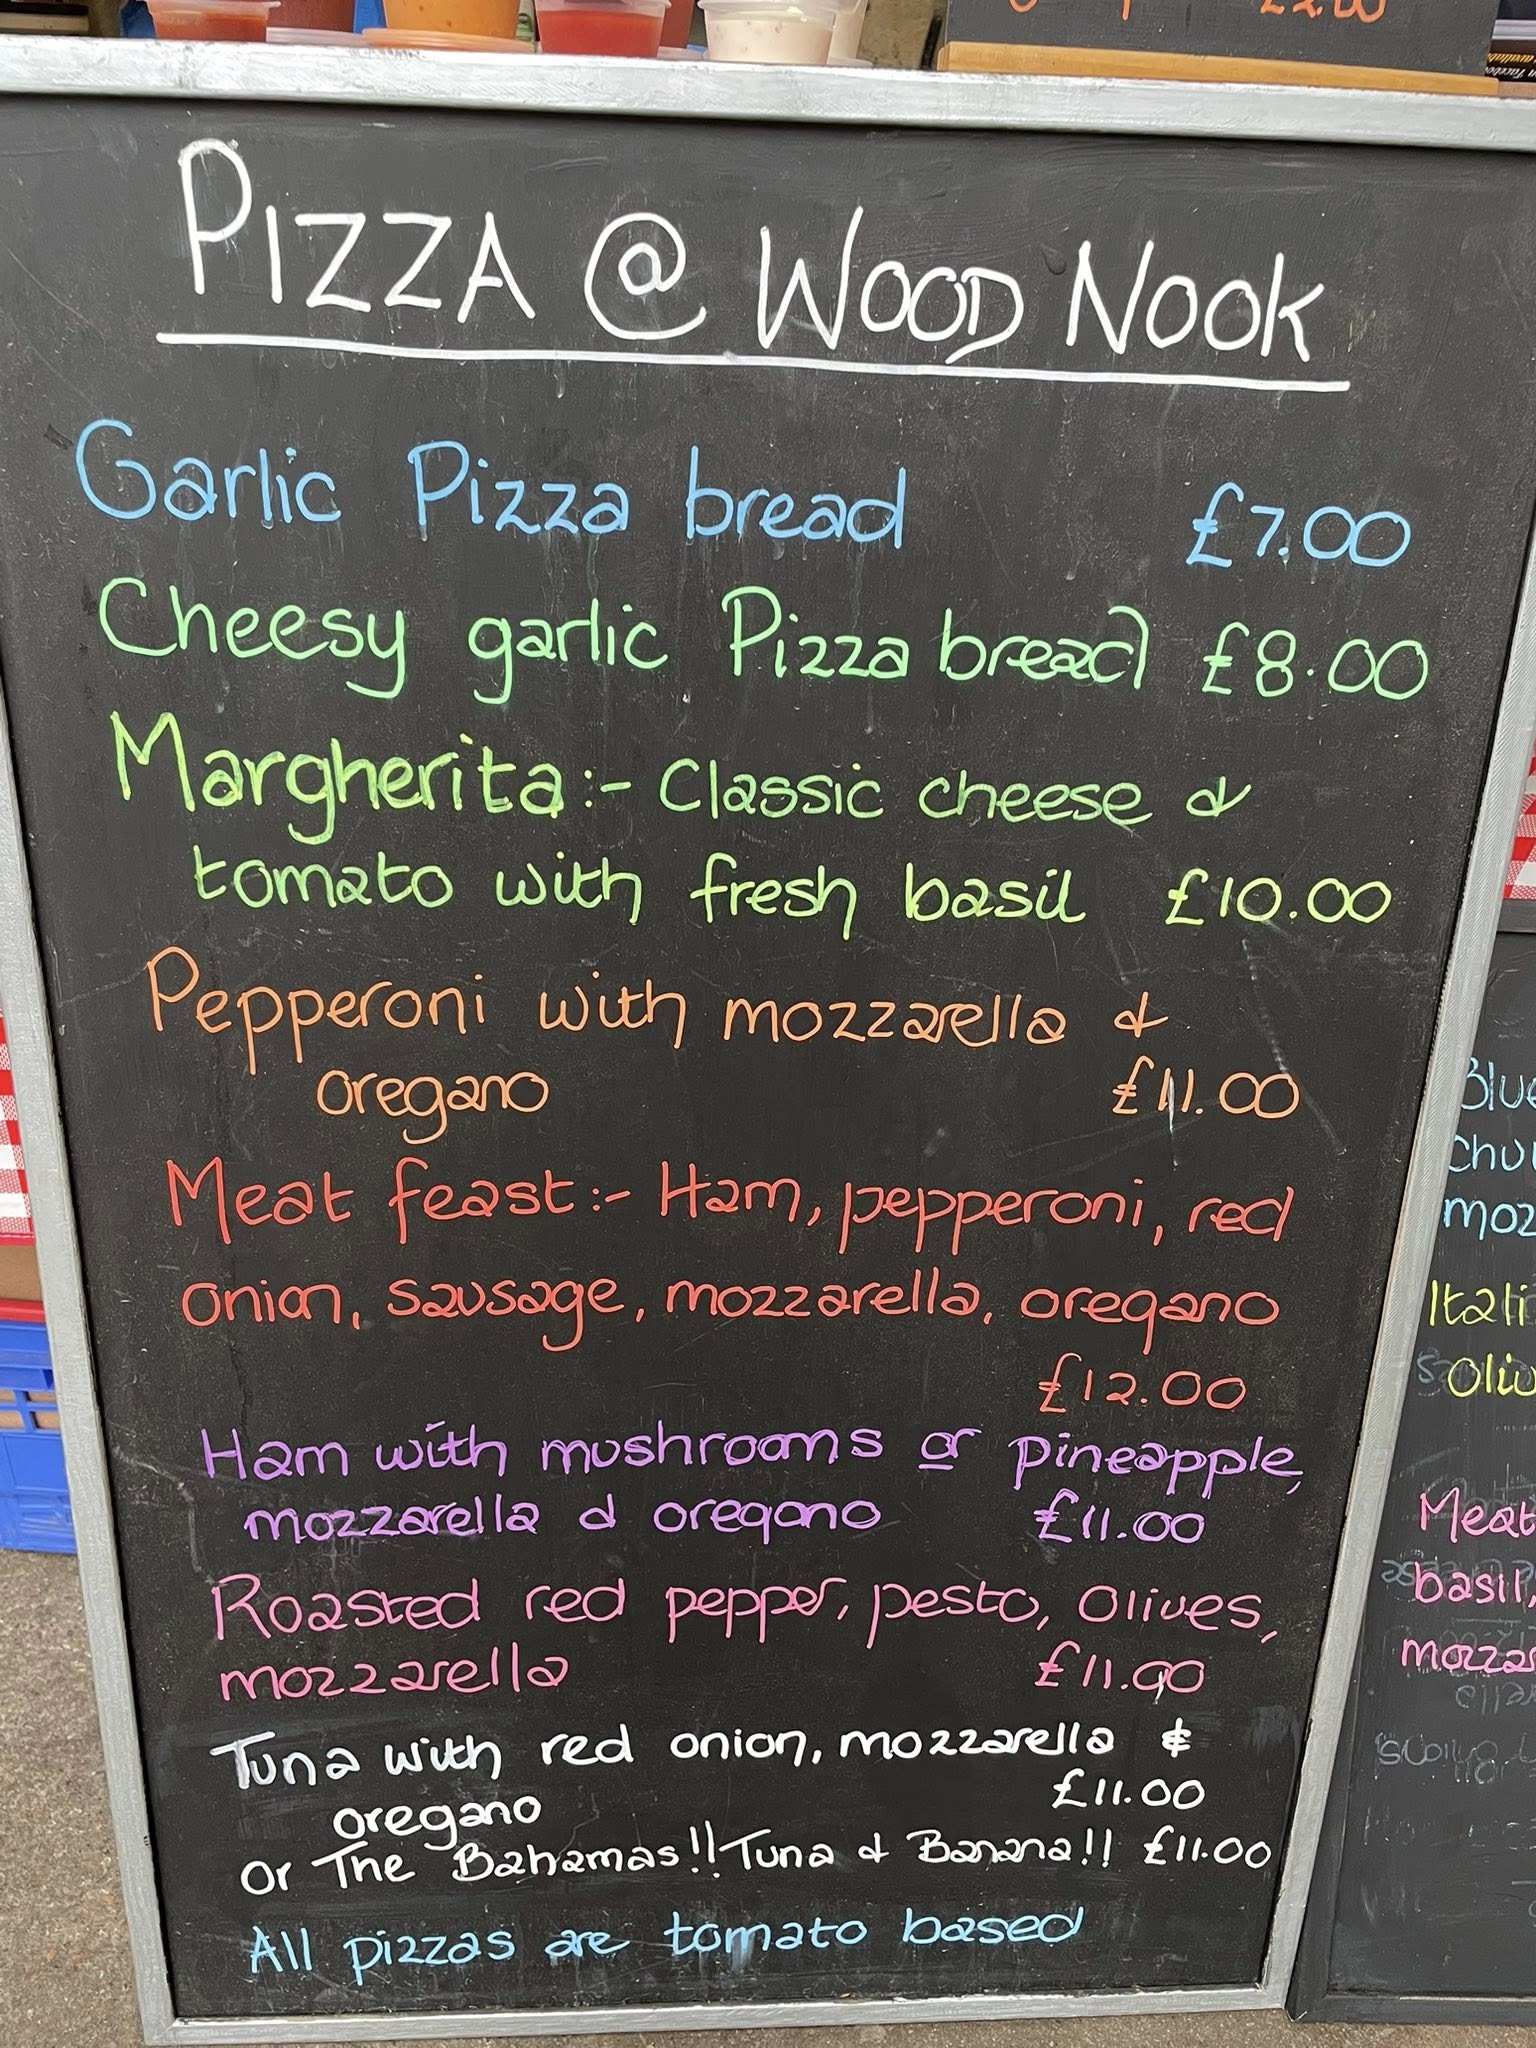 £2.00
PIZZA @ WOOD NOOK
Garlic Pizza bread £7.00
Cheesy garlic Pizza bread £8.00
Margherita:- Classic cheese &
tomato with fresh basil £10.00
Pepperoni with mozzarella &
oregano £11.00
Meat feast:- Ham, pepperoni, red
onion, sausage, mozzarella, oregano
£12.00
Ham with mushrooms or pineapple,
mozzarella & oregano £11.00
Roasted red pepper, pesto, olives,
mozzarella £11.00
Tuna with red onion, mozzarella &
oregano £11.00
or The Bahamas!! Tuna & Banana!! £11.00
All pizzas are tomato based
Blue
Chu
moz
Itali
Oliv
Meat
basil,
mozzar